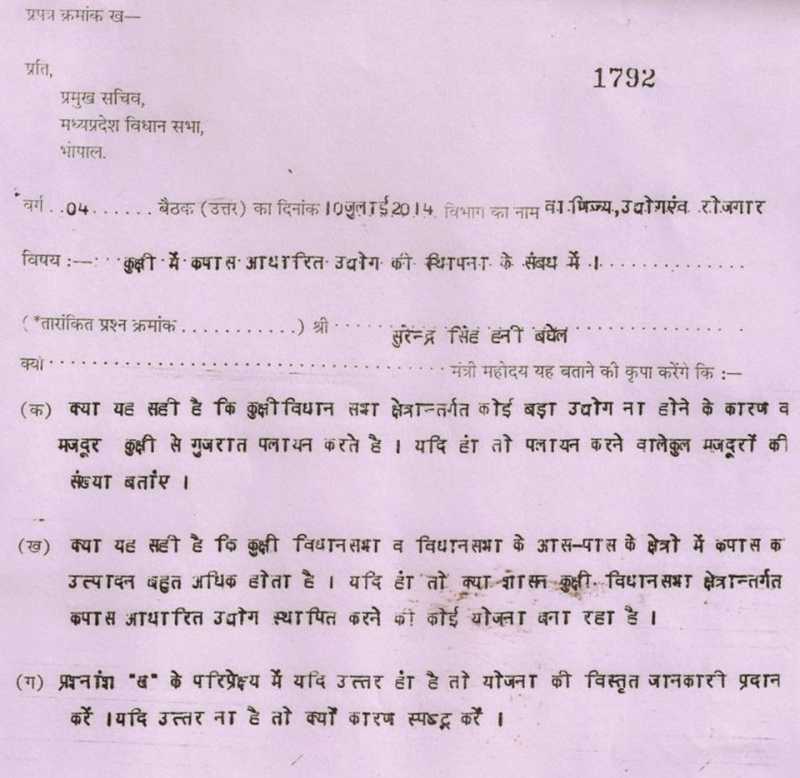 प्रपत्र क्रमांक ख—
प्रति,
1792
प्रमुख सचिव,
मध्यप्रदेश विधान सभा,
भोपाल.
वर्ग ..04...... बैठक (उत्तर) का दिनांक 10जुलाई2014. विभाग का नाम वाणिज्य,उद्योगएंव रोजगार
विषय :— कुक्षी में कपास आधारित उद्योग की स्थापना के संबध में ।..............
(*तारांकित प्रश्न क्रमांक ...........) श्री ..... सुरेन्द्र सिंह हनी बघेल ..............
क्यो ........................................ मंत्री महोदय यह बताने की कृपा करेंगे कि :—
(क) क्या यह सही है कि कुक्षीविधान सभा क्षेत्रान्तर्गत कोई बड़ा उद्योग ना होने के कारण व
मजदूर कुक्षी से गुजरात पलायन करते है । यदि हां तो पलायन करने वालेकुल मजदूरों की
संख्या बतांए ।
(ख) क्या यह सही है कि कुक्षी विधानसभा व विधानसभा के आस-पास के क्षेत्रो में कपास क
उत्पादन बहुत अधिक होता है । यदि हां तो क्या शासन कुक्षी विधानसभा क्षेत्रान्तर्गत
कपास आधारित उद्योग स्थापित करने की कोई योजना बना रहा है ।
(ग) प्रश्नांश "ख" के परिप्रेक्ष्य में यदि उत्तर हां है तो योजना की विस्तृत जानकारी प्रदान
करें ।यदि उत्तर ना है तो क्यों कारण स्पष्ट करें ।